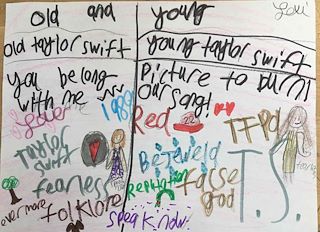 old and young
Lexi
old taylor swift
young taylor swift
you belong
with me
Picture to burn
our song!
Lover
1989
Red
TTPD
taylor
swift
Bejeweld
T.S.
fearless
Reputation
false
god
evermore
folklore
speak now